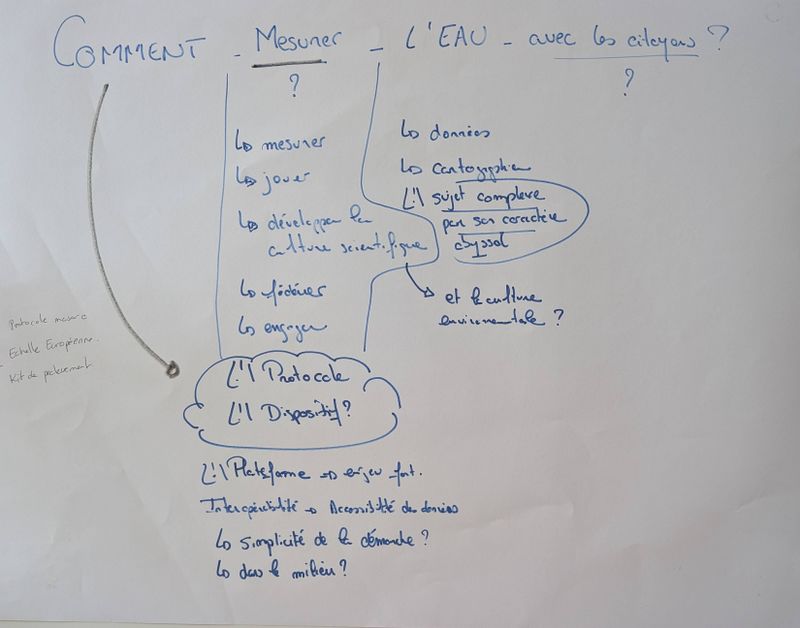 COMMENT - Mesurer - L'EAU - avec les citoyens ?
?
?
↳ mesurer
↳ jouer
↳ développer la
culture scientifique
↳ fédérer
↳ engager
↳ données
↳ cartographier
/!\ sujet complexe
par son caractère
abyssal
et la culture
environementale ?
Protocole mesure
Echelle Européenne.
Kit de prélevement
/!\ Protocole
/!\ Dispositif ?
/!\ Plateforme → enjeu fort.
Interopérabilité → Accessibilité des données
↳ simplicité de la démarche ?
↳ dans le milieu ?